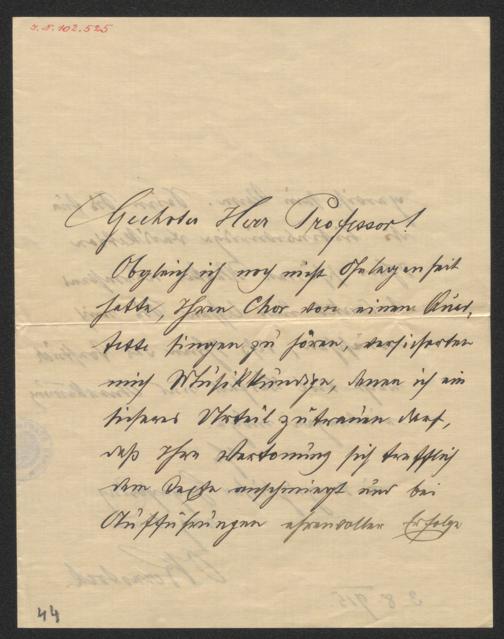 I.N. 102.525
Geehrter Herr Professor!
Obgleich ich noch nicht Gelegenheit
hatte, Ihren Chor von einem Quar-
tette singen zu hören, versicherten
mich Musikkundige, denen ich ein
sicheres Urteil zutrauen darf,
daß Ihre Vertonung sich trefflich
dem Texte anschmiegt und bei
Aufführungen ehrenvoller Erfolge
44